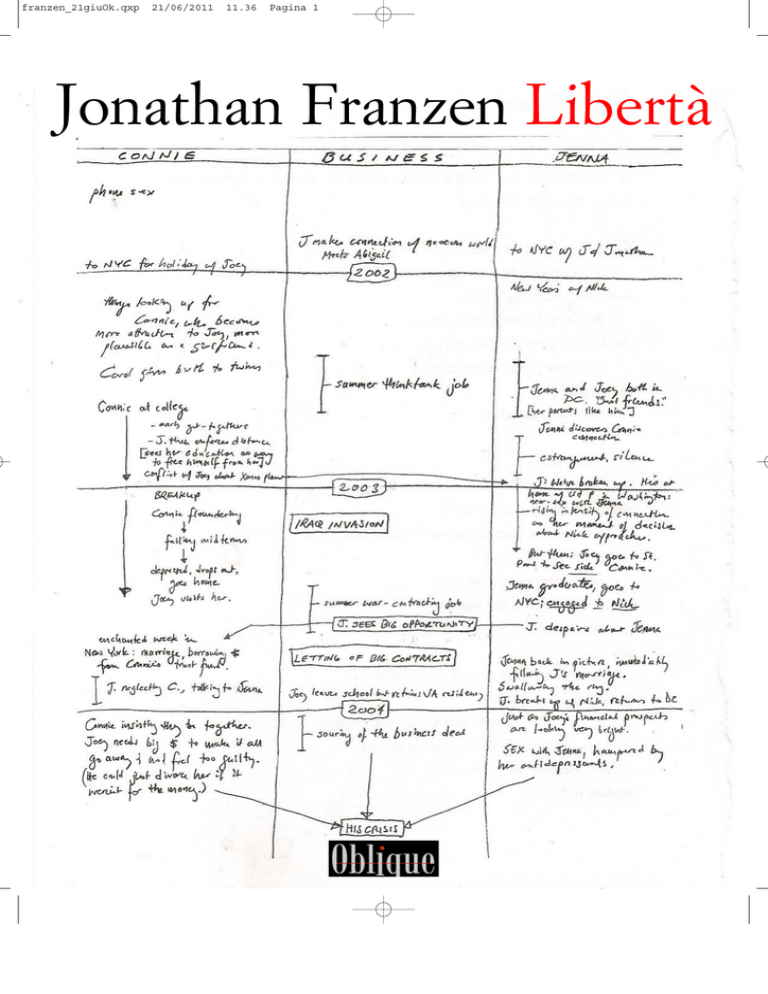 franzen_21giuOk.qxp 21/06/2011 11.36 Pagina 1
Jonathan Franzen Libertà
CONNIE
phone sex
to NYC for holiday w/ Joey
Things looking up for
Connie, who becomes
more attractive to Joey, more
plausible as a girlfriend.
Carol gives birth to twins
Connie at college
- early get-togethers
- J. then enforces distance
[sees her education as way
to free himself from her]
conflict w/ Joey about Xmas plans
BREAKUP
Connie floundering
failing midterms
depressed, drops out,
goes home
Joey visits her.
enchanted week in
New York: marriage, borrowing $
from Connie's trust fund.
J. neglectful C., talking to Jenna
Connie insisting they be together.
Joey needs big $ to make it all
go away & not feel too guilty.
(He could just divorce her if it
weren't for the money.)
BUSINESS
J makes connection w/ neocon world
Meets Abigail
2002
summer thinktank job
2003
IRAQ INVASION
summer war-contracting job
J. SEES BIG OPPORTUNITY
LETTING OF BIG CONTRACTS
Joey leaves school but retains VA residency
2004
souring of the business deal
HIS CRISIS
JENNA
to NYC w/ J & Jonathan
New Year's w/ Nick
Jenna and Joey both in
DC. "Just friends."
[her parents like him]
Jenna discovers Connie
connection
estrangement, silence
J: We've broken up. He's at
home of in Washington:
near-sex with Jenna
rising intensity of connection
as her moment of decision
about Nick approaches.
But then: Joey goes to St.
Paul to see sick Connie.
Jenna graduates, goes to
NYC; engaged to Nick
J. despairs about Jenna
Jenna back in picture, immediately
following J's marriage.
Swallowing the ring.
J. breaks up w/ Nick, returns to DC
just as Joey's financial prospects
are looking very bright.
SEX with Jenna, hampered by
her antidepressants.
Oblique